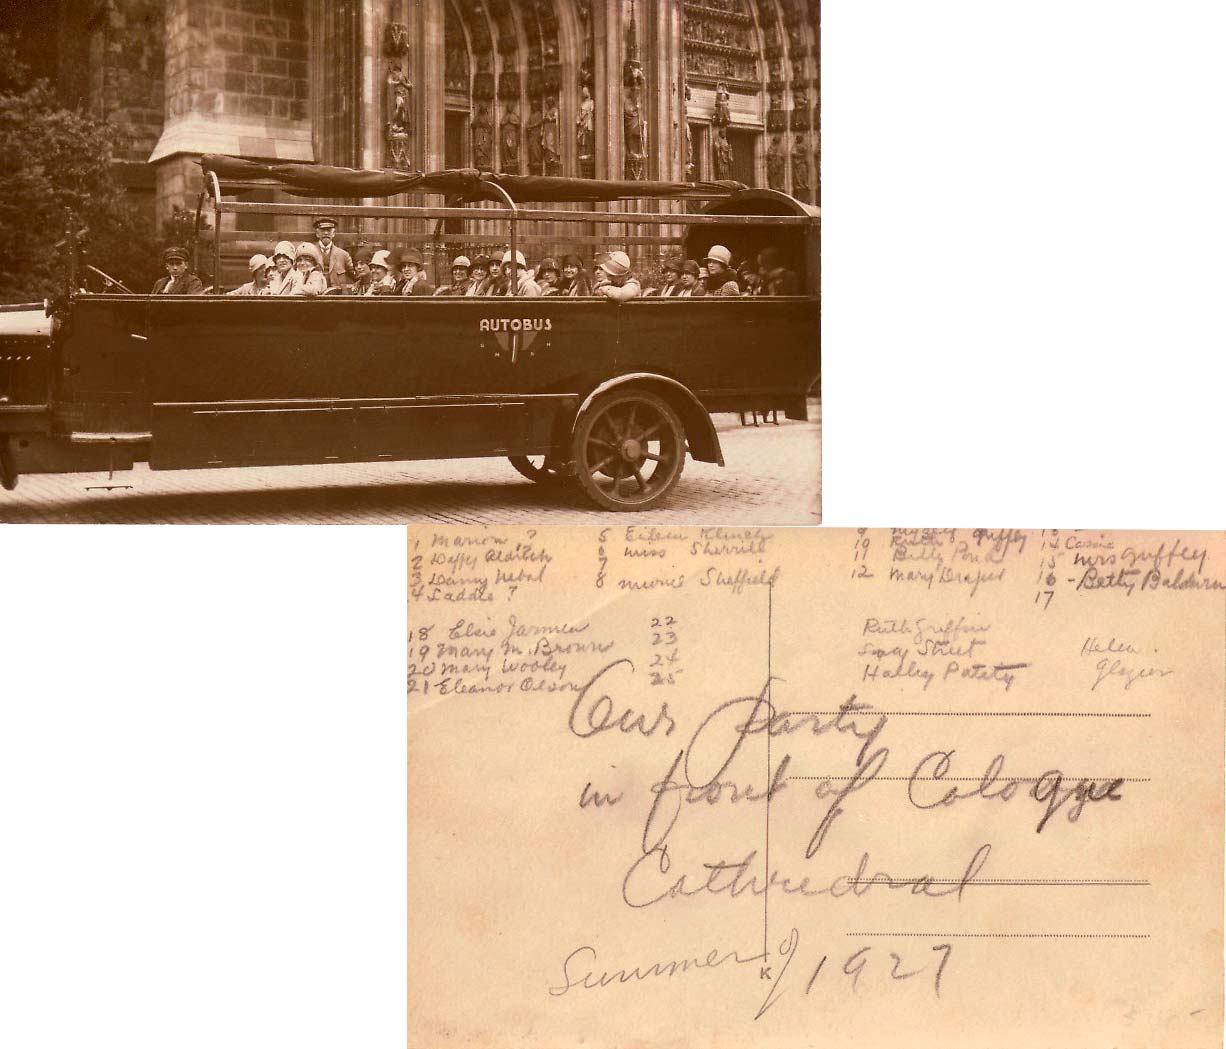 AUTOBUS
1 Marion ?
2 Daffy Aldrich
3 Danny
4 Laddie ?
5 Eileen
6 Miss Sherrill
7
8 Sheffield
9 Guffey
10 Ruth ?
11 Billy Pond
12 Mary Draper
13
14 Cassie
15 Mrs Guffey
16 - Betty Baldwin
17
18 Elsie Jarmen
19 Mary M. Brown
20 Mary Wooley
21 Eleanor Olson
22
23
24
25
Ruth Griffin
Street
Halley
Helen
Glazier
Our party
in front of Cologne
Cathedral
Summer of 1927
K